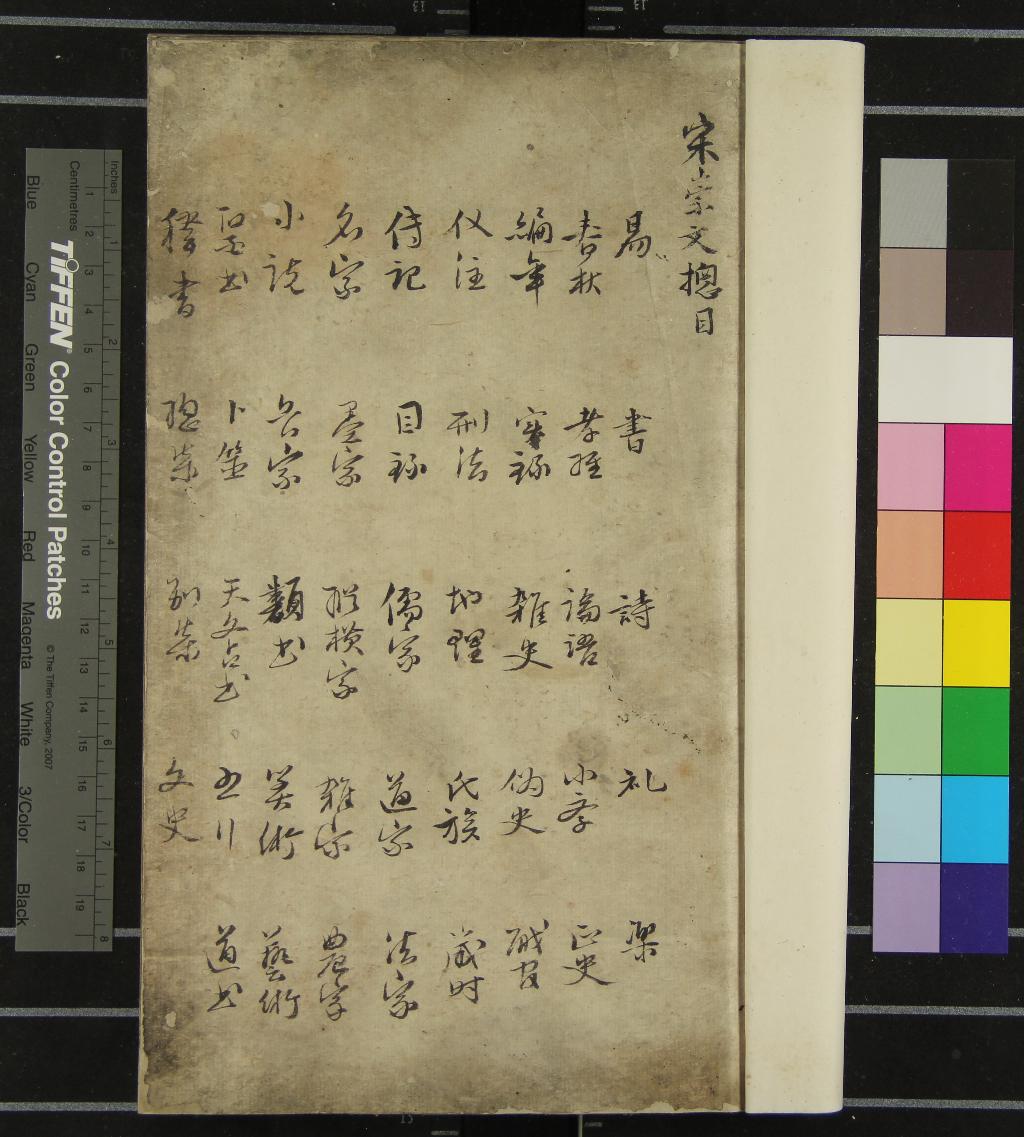 宋崇文摠目
易 書 詩 礼 樂
春秋 孝經 論語 小學 正史
編年 實録 雜史 偽史 職官
儀注 刑法 地理 氏族 歲時
傳記 目録 儒家 道家 法家
名家 墨家 縱横家 雜家 農家
小說 兵家 類書 筭術 藝術
醫書 卜筮 天文占書 五行 道書
釋書 總集 别集 文史
Inches
1 2 3 4 5 6 7 8
Centimetres
1 2 3 4 5 6 7 8 9 10 11 12 13 14 15 16 17 18 19
TIFFEN® Color Control Patches
© The Tiffen Company, 2007
Blue Cyan Green Yellow Red Magenta White 3/Color Black